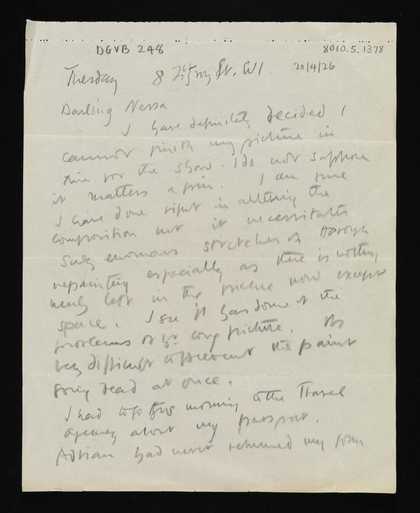 DGVB 248
8010.5.1378
Tuesday 8 Fitzroy St. W1 20/4/26
Darling Nessa
I have definitely decided I
cannot finish my picture in
time for the show. I do not suppose
it matters a pin. I am sure
I have done right in altering the
composition but it necessitates
such enormous stretches of
repainting especially as there is nothing
nearly left in the picture now except
space. I see it has some of the
problems of picture. It's
very difficult to prevent the paint
going dead at once.
I had to go this morning to the Travel
Agency about my passport.
Adrian had never returned my form